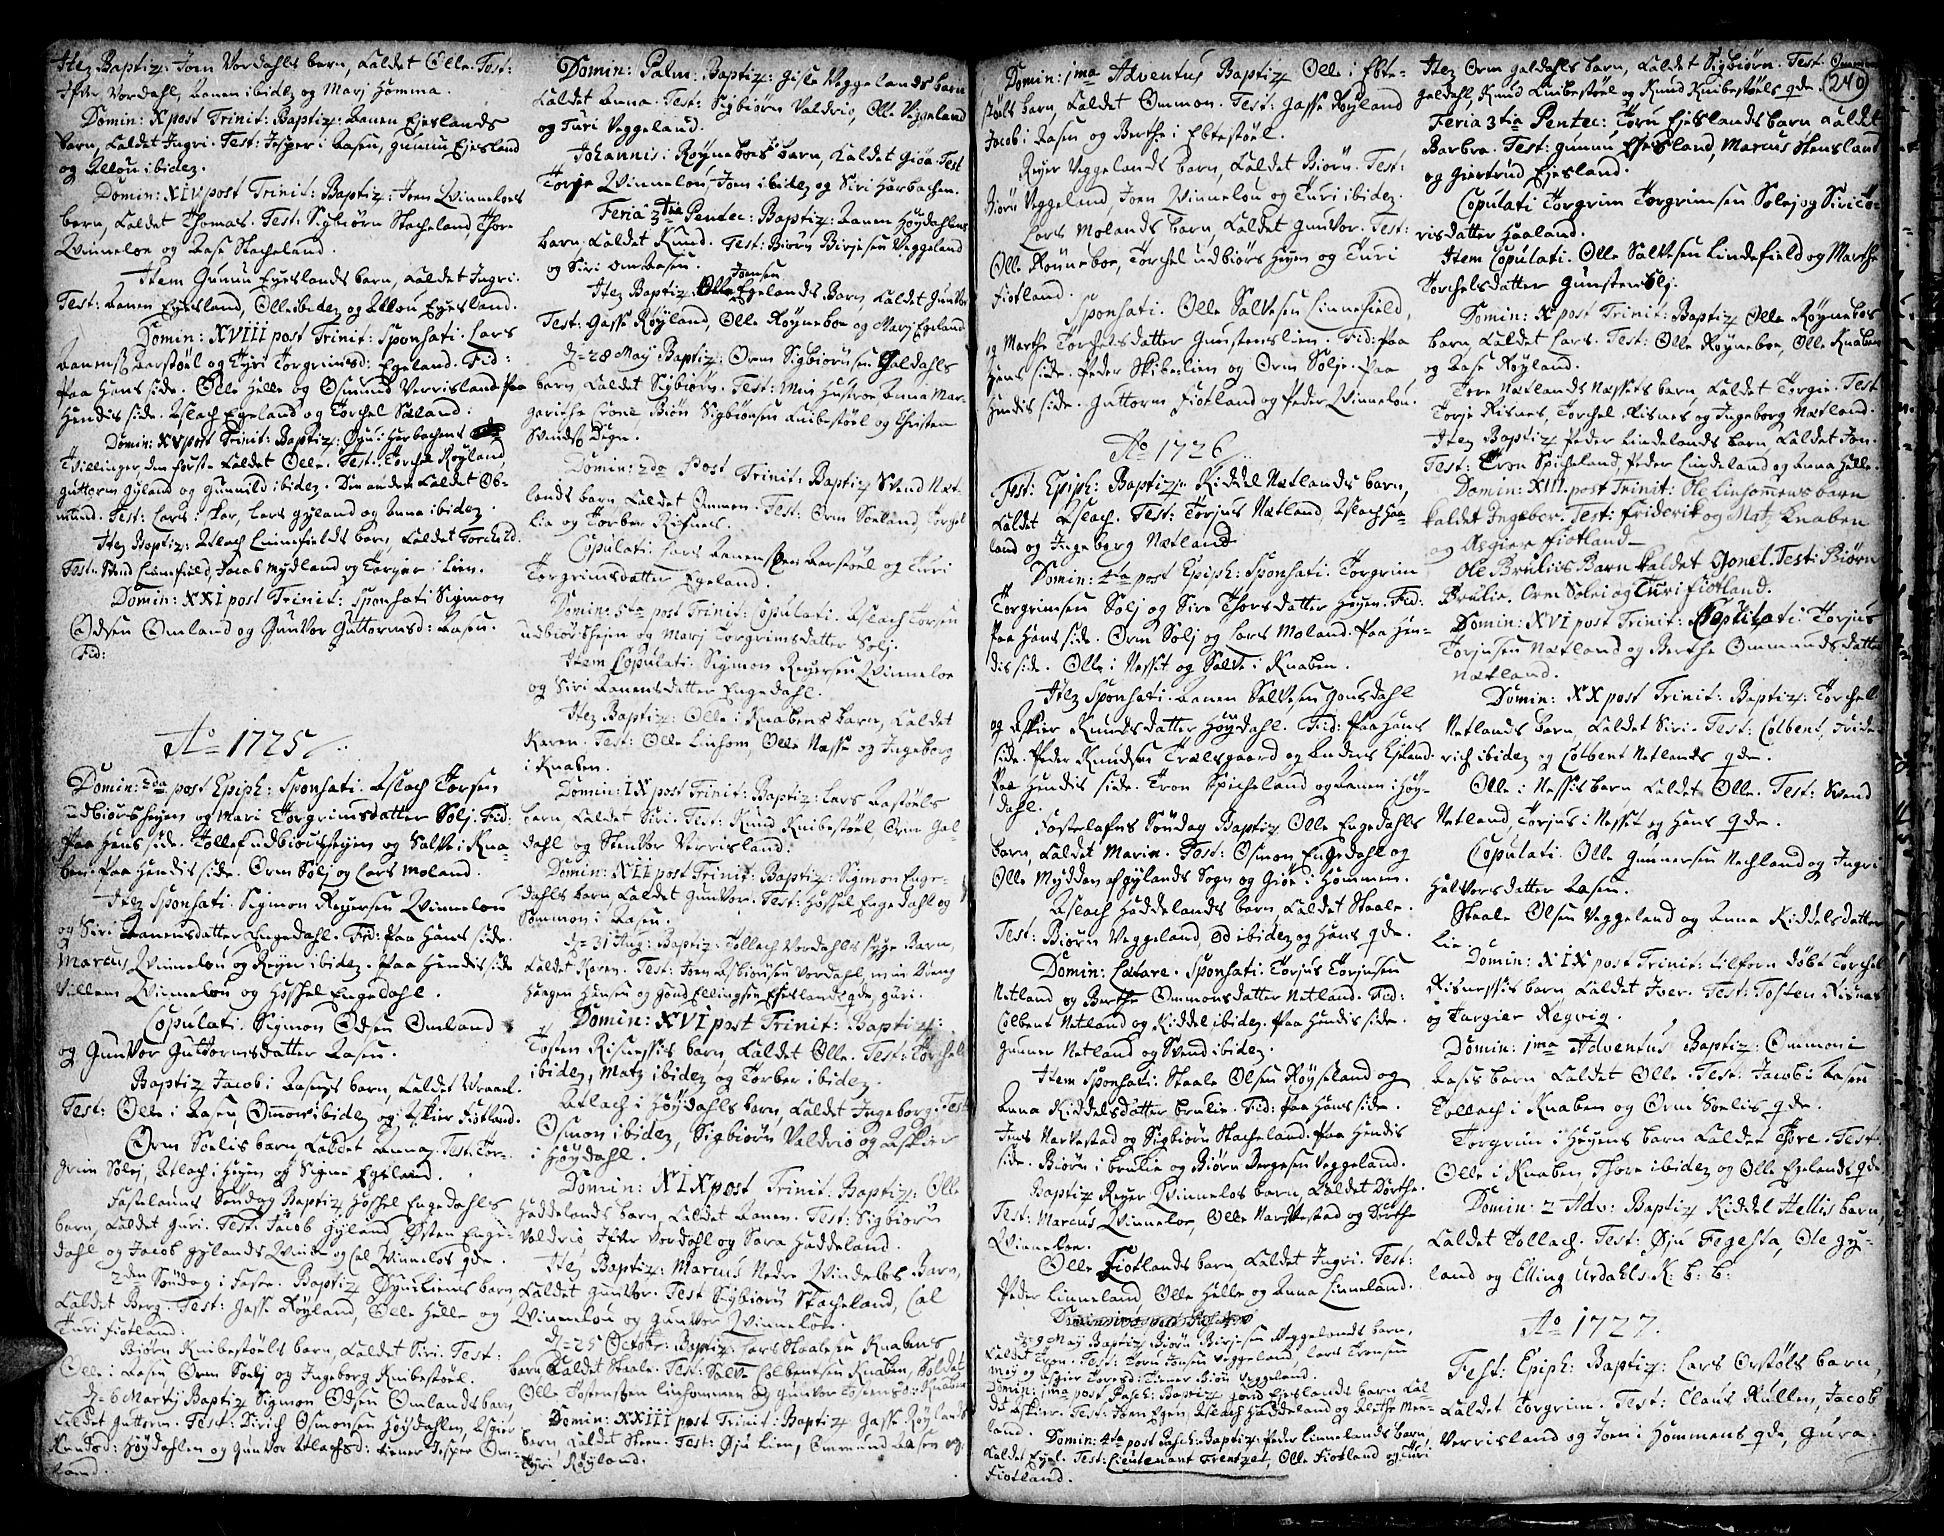 Itez Baptiz: Joen Vordahls barn, Caldet Olle. Test:
Vordahl, Aanen ibidez og Marj Homma.
Domin: X post Trinit: Baptiz: Aanen Ejeslands
barn, Caldet Ingri. Test: Jesper i Aasen, Gunnu Ejesland
og ibidez.
Domin: XIV post Trinit: Baptiz: Joen Qvinneloes
barn, Caldet Thomas. Test: Sigbiørn Stacheland, Thor
Qvinneloe og Aase Stacheland.
Item Gunnu Ejeslands barn, Caldet Ingri.
Test: Aanen Ejesland, Olle ibidez og Ejesland.
Domin: XVIII post Trinit: Sponsati. Lars
Aarstøel og Tyri Torgrimsd: Egeland. Fid:
Paa Hans side. Olle Helle og Osmund Verrisland. Paa
Hendis side. Aslach Egeland og Torchel Sæland:
Domin: XV post Trinit: Baptiz: Harbachens
Tvillinger den første Caldet Olle. Test: Torchel Røyland,
Guttorm Gyland og Gunnild ibidez. Den anden Caldet Os-
mund. Test: Lars i, Lars Gyland og Anna ibidez.
Itez Baptiz: Aslach Linnefields barn, Caldet Torchild.
Test: Svend Linnefield, Jacob Mydland og Torger i Lien.
Domin: XXI post Trinit: Sponsati Sigmon
Odsen Omland og Gunvor Guttormsd: Aasen.
Fid:
Ao 1725
Domin: 2da post Epiph: Sponsati. Aslach Torsen
udbiørsheyen og Mari Torgrimsdatter Solj. Fid:
Paa Hans side. Tollef udbiørsheyen og Salve i Kna-
ben. Paa Hendis side. Orm Solj og Lars Moland.
Itez Sponsati. Sigmon Reyersen Qvinneloe
og Siri Aanensdatter Engedahl. Fid: Paa Hans side.
Marcus Qvinnelou og Reyer ibidez. Paa Hendis side
Villem Qvinnelou og Hoskel Engedahl.
Copulati. Sigmon Odsen Omland
og Gunvor Guttormsdatter Aasen.
Baptiz Jacob i Aasens barn, Caldet Vraael.
Test: Olle i Aasen, Ommon ibidez og Asgier Fiotland.
Orm Soelis barn, Caldet Anna. Test: Tor-
grim Solej, Aslach i Heyen og Signe Egeland.
Fastelauns Søndag Baptiz Hoskel Engedahls
barn, Caldet Guri. Test: Jacob Gyland, Østen Enge-
dahl og Jacob Gylands Qvinde og Cal Qvinnelos qde.
2den Søndag i Faste. Baptiz barn,
Caldet Berg. Test: Gasse Røyland, Olle Helle og
Turi Fiotland.
Biørn Knibestøels barn, Caldet Siri. Test:
Olle i Aasen, Orm Solj og Ingeborg Knibestøel.
D= 6 Martij Baptiz Sigmon Odsen Omlands barn,
Caldet Guttorm. Test: Sirich Osmonsen Høydahlen, Asgier
Knudsd: Høydahlen og Gunvor Aslachsd: tiener Jesper Om-
land.
Domin: Palm: Baptiz: Gisle Veggelands barn
Caldet Anna. Test: Sigbiørn Valdrio, Olle Veggeland
og Turi Veggeland.
Johannis i Røyneboes barn, Caldet Giøa. Test
Torje Qvinnelou, Jon ibidez og Siri Harbachen.
Feria 3tia Pentec: Baptiz: Aanen Høydahlens
barn, Caldet Knud. Test: Biørn Birjesen Veggeland
og Siri Om Aasen.
Itez Baptiz: Olle Joensen Egelands Barn, Caldet Gunvor
Test: Gasse Røyland, Olle Røyneboe og Marj Egeland
D= 28 May Baptiz: Orm Sigbiørnsen Galdahls
barn Caldet Sigbiørn. Test: Min Hustroe Anna Mar-
garitha Crone, Biørn Sigbiørnsen Knibestøel og Christen
Svends Degn.
Domin: 2da Post Trinit: Baptiz Svend Næt-
lands barn, Caldet Ommen. Test: Orm Soeland, Torchel
Lie og Torber Risnes.
Copulati: Lars Aanensen Aarstøel og Turi
Torgrimsdatter Egeland.
Domin: 5ta post Trinit: Copulati. Aslach Torsen
udbiørsheyen og Marj Torgrimsdatter Solj.
Item Copulati. Sigmon Reyersen Qvinneloe
og Siri Aanensdatter Engedahl.
Itez Baptiz: Olle i Knabens barn, Caldet
Karen. Test: Olle Linhom, Olle Næsse og Ingeborg
i Knaben.
Domin: IX post Trinit: Baptiz: Lars Aastøels
barn Caldet Siri. Test: Knud Knibestøel Orm Gal-
dahl og Stenvor Verrisland.
Domin: XII post Trinit: Baptiz: Sigmon Enge-
dahls barn Caldet Gunvor. Test: Hoskel Engedahl og
Sommon i Aasen.
D= 31 Aug: Baptiz: Tollach Vordahls syge Barn,
Caldet Karen. Test: Joen Asbiørnsen Vordahl, min Dreng
Haagen Hansen og Gond Ellingsen Ejeslands qde, Guri.
Domin: XVI post Trinit: Baptiz:
Tosten Risnessis barn, Caldet Olle. Test: Torchel
ibidez, Matz ibidez og Torber ibidez.
Aslach i Høydahls barn, Caldet Ingeborg. Test:
Osmon ibidez, Sigbiørn Valdrio og Asgier
i Høydahl.
Domin: XIX post Trinit. Baptiz: Olle
Haddelands barn, Caldet Aanen. Test: Sigbiørn
Valdrio Vordahl og Sara Haddeland.
Itez Baptiz: Marcus Nedre Qvindelos Barn,
Caldet Gunvor. Test Sigbiørn Stacheland, Cal
Qvinnelou og Gunvor Qvinneloe.
D= 25 October: Baptiz: Lars Staalesen Knabens
barn Caldet Staale. Test: Salve Colbentsen Knaben, Soldat
Olle Tostensen Linhommen og Gunvor Tostensd: Knaben
Domin: XXIII post Trinit: Baptiz Gasse Røylands
barn, Caldet Steen. Test: Lien, Ommund Aasen og
Tyri Røyland.
Domin: 1ma Adventus Baptiz Olle i Ebte-
støls barn, Caldet Ommon. Test: Gasse Røyland
Jacob i Aasen og Berthe i Ebtestøel.
Reyer Veggelands barn, Caldet Biørn. Test:
Biørn Veggeland, Joen Qvinnelou og Turi ibidez.
Lars Molands barn, Caldet Gunvor. Test:
Olle Røyneboe, Torchel udbiørs heyen og Turi
Fiotland.
Sponsati. Olle Salvesen Linnefield,
og Marthe Torchelsdatter Gunstenslien. Fid: Paa
Hans side. Peder Skibelien og Orm Solje. Paa
Hendis side. Guttorm Fiotland og Peder Qvinnelou.
Ao 1726
Fest: Epiph: Baptiz: Kiddel Nætlands barn,
Caldet Aslach. Test: Torjus Nætland, Aslach Haa-
land og Ingeborg Nætland.
Domin: 4ta post Epiph: Sponsati. Torgrim
Torgrimsen Solj og Sire Thorsdatter Heyen. Fid:
Paa Hans side. Orm Solj og Lars Moland. Paa Hen-
dis side. Olle i Nesset og Salve i Knaben.
Itez Sponsati. Aanen Salvesen Gonsdahl
og Asgier Knudsdatter Høydahl. Fid: Paa Hans
side. Peder Knudsen Trælsgaard og Anders Ejesland.
Paa Hendis side. Tron Spicheland og Aanen i Høy-
dahl.
Fastelafns Søndag Baptiz Olle Engedahls
barn, Caldet Marin. Test: Osmon Engedahl og
Olle Mydden af Gylands Sogn og Giøe i Hommen.
Aslach Haddelands barn, Caldet Staale.
Test: Biørn Veggeland, Od ibidez og Hans qde.
Domin: Lætare. Sponsati. Torjus Torjusen
Netland og Berthe Ommonsdatter Netland. Fid:
Colbent Netland og Kiddel ibidez. Paa Hendis side.
Gunner Netland og Svend ibidez.
Item Sponsati. Staale Olsen Røyseland og
Anna Kiddelsdatter Brulie. Fid: Paa Hans side.
Jens Narvestad og Sigbiørn Stacheland. Paa Hendis
side. Biørn i Brulie og Biørn Bergesen Veggeland.
Baptiz Reyer Qvinnelos barn, Caldet Dorthe.
Test: Marcus Qvinneloe, Olle Narvestad og Dorthe
Qvinneloe.
Olle Fiotlands barn Caldet Ingri. Test:
Peder Linneland, Olle Helle og Anna Linneland.
D= 9 May Baptiz Biørn Birjesen Veggelands barn,
Caldet Tron. Test: Toru Jonsen Veggeland, Lars Tronsen
Moy og Asgier Toresd: tiener Biørn Veggeland.
Domin: 1ma post Pasch: Baptiz Gond Ejeslands barn Cal-
det Asgier. Test: Joen Egen, Aslach Haddeland og Alethe Moe-
land. Domin: 4ta post Pasch: Baptiz: Peder Linnelands barn,
Caldet Ejel. Test: Lieutenant Frentzel, Olle Fiotland og Turi
Fiotland.
Itez Orm Galdahls barn, Caldet Sigbiørn. Test: Ommun
240
Galdahl, Knud Knibestøel og Knud Knibestøels qde.
Feria 3tia Pentec: Toru Ejeslands barn Caldet
Barbra. Test: Gunnu Ejesland, Marcus Stensland
og Giertrud Ejesland.
Copulati Torgrim Torgrimsen Solej og Siri To-
risdatter Haaland.
Item Copulati. Olle Salvesen Lindefield og Marthe
Torchelsdatter Gunstenslj.
Domin: X post Trinit: Baptiz Olle Røynebos
barn Caldet Lars. Test: Olle Røyneboe, Olle Knaben
og Aase Røyland.
Tore Nætlands Næssets barn, Caldet Torgie. Test
Torje Risnes, Torchel Risnes og Ingeborg Nætland.
Itez Baptiz Peder Lindelands barn Caldet Jon.
Test: Tron Spicheland, Peder Lindeland og Anna Helle.
Domin: XIII. post Trinit: Ole Linhommens barn
kaldet Ingeber. Test: Friderik og Matz Knaben
og Asgier Fiotland
Ole Bruliis Barn kaldet Gonel. Test: Biørn
Brulie. Orm Solei og Turi Fiotland.
Domin: XVI post Trinit: Copulati: Torjus
Torjusen Nætland og Berthe Ommundsdatter
Nætland.
Domin: XX post Trinit: Baptiz: Torchel
Netlands barn, Caldet Siri. Test: Colbent, Fride-
rich ibidez og Colbent Netlands qde.
Olle i Nessis barn Caldet Olle. Test: Svend
Netland, Torjus i Nesset og Hans qde.
Copulati. Olle Gunnersen Nechland og Ingri
Halvorsdatter Aasen.
Staale Olsen Veggeland og Anna Kiddelsdatter
Lie.
Domin: XIX post Trinit: tilforn døbt Torchel
Risnessis barn Caldet Iver. Test: Tosten Risnes
og Targier Regvig.
Domin: 1ma Adventus Baptiz: Ommon i
Aases barn Caldet Olle. Test: Jacob i Aasen
Tollach i Knaben og Orm Soelis qde.
Torgrim i Heyens barn Caldet Thore. Test:
Olle i Knaben, Thore ibidez og Olle Egelands qde
Domin: 2 Adv: Baptiz Kiddel Hellis barn,
Caldet Tollach. Test: Øju Fegesta, Ole Gy-
land og Elling Urdahls K: b: b:
Ao 1727.
Fest: Epiph: Baptiz: Lars Orstøls barn,
Caldet Torgrim. Test: Claus Rullen, Jacob
Verrisland og Joen i Hommens qde, Gura.